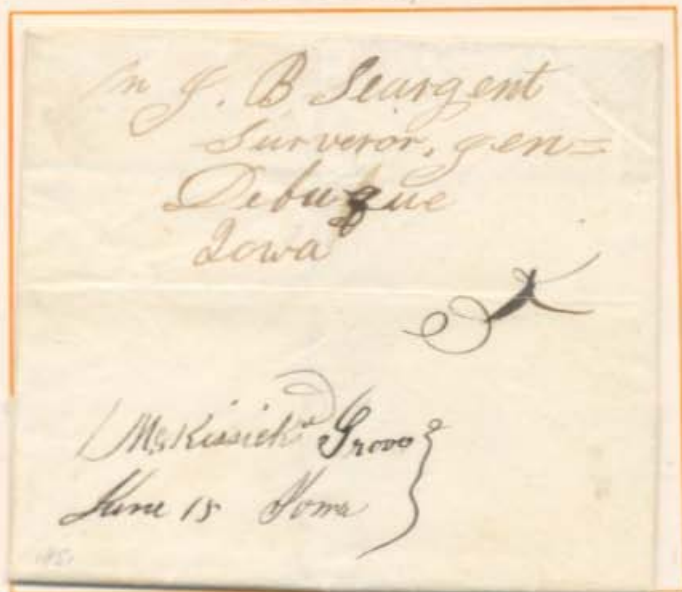 Mr J. B Seargent
Surveror, gen=
Debuque
Iowa
McKissick's Grove
June 15 Iowa